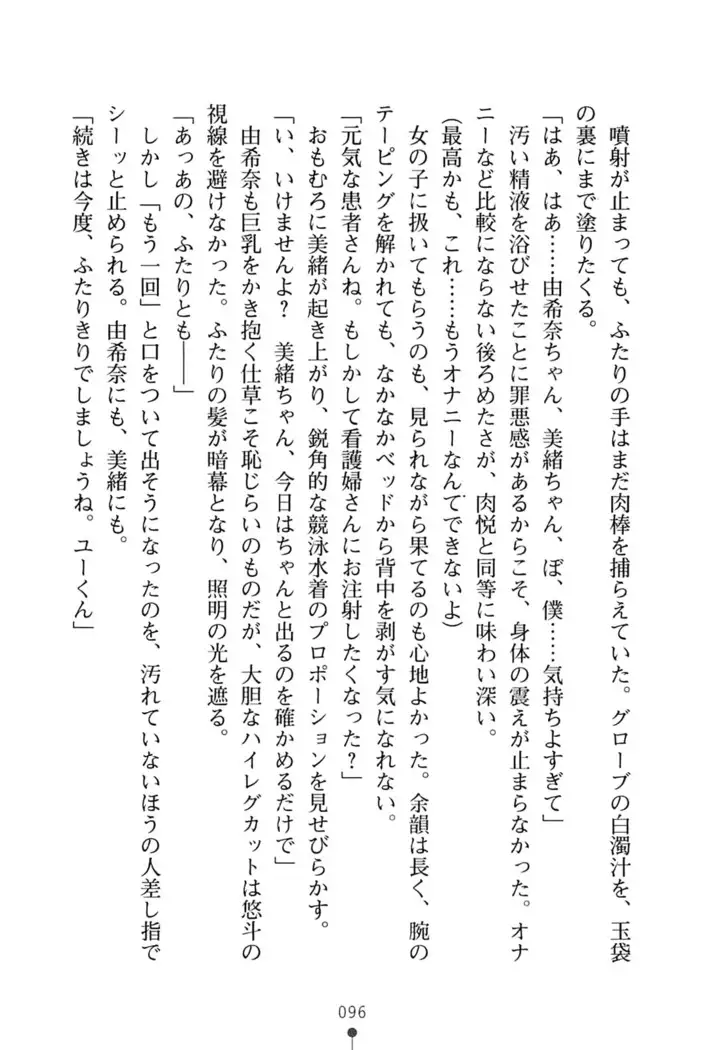 噴射が止まっても、ふたりの手はまだ肉棒を捕らえていた。グローブの白濁汁を、玉袋
の裏にまで塗りたくる。
「はあ、はあ……由希奈ちゃん、美緒ちゃん、ぼ、僕……気持ちよすぎて」
汚い精液を浴びせたことに罪悪感があるからこそ、身体の震えが止まらなかった。オナ
ニーなど比較にならない後ろめたさが、肉悦と同等に味わい深い。
(最高かも、これ……もうオナニーなんてできないよ)
女の子に扱いてもらうのも、見られながら果てるのも心地よかった。余韻は長く、腕の
テーピングを解かれても、なかなかベッドから背中を剥がす気になれない。
「元気な患者さんね。もしかして看護婦さんにお注射したくなった?」
おもむろに美緒が起き上がり、鋭角的な競泳水着のプロポーションを見せびらかす。
「い、いけませんよ? 美緒ちゃん、今日はちゃんと出るのを確かめるだけで」
由希奈も巨乳をかき抱く仕草こそ恥じらいのものだが、大胆なハイレグカットは悠斗の
視線を避けなかった。ふたりの髪が暗幕となり、照明の光を遮る。
「あっあの、ふたりとも――」
しかし「もう一回」と口をついて出そうになったのを、汚れていないほうの人差し指で
シーッと止められる。由希奈にも、美緒にも。
「続きは今度、ふたりきりでしましょうね。ユーくん」
096